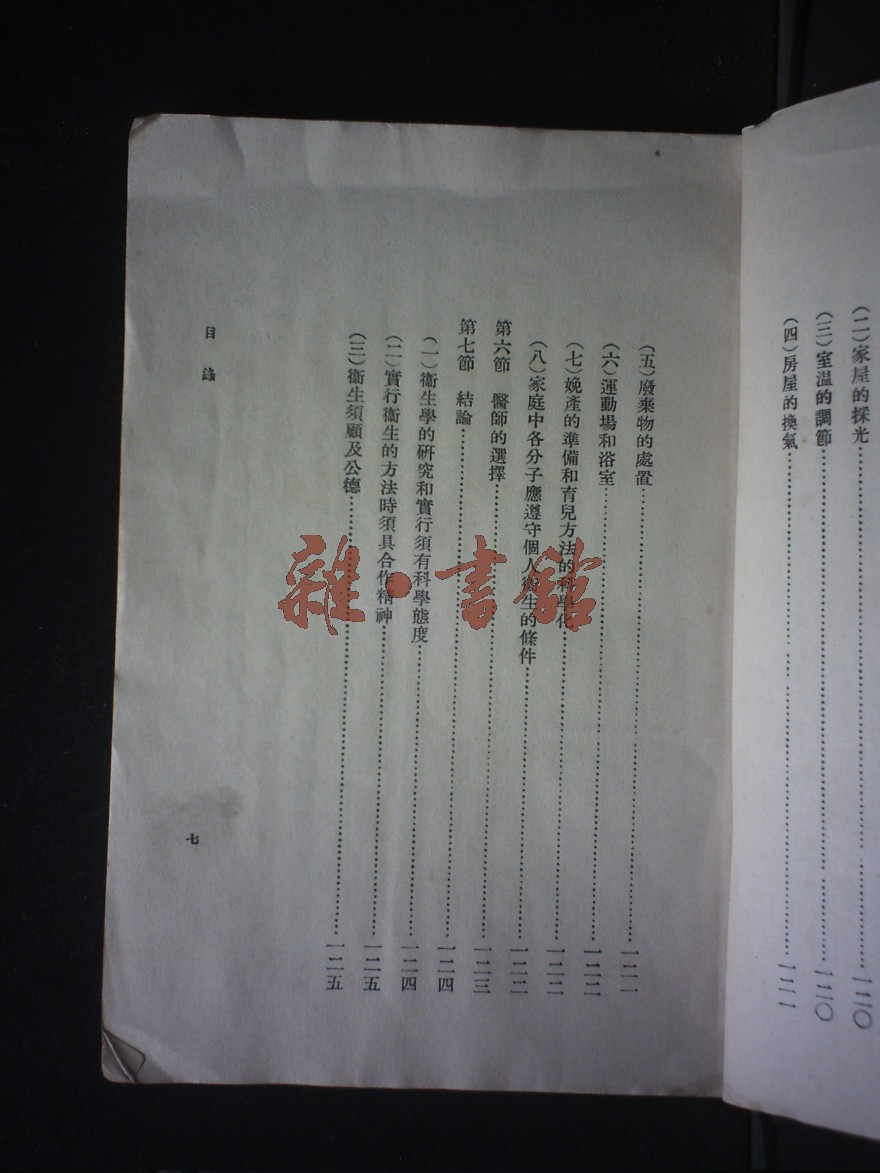 (二)家屋的採光……一二〇
(三)室溫的調節……一二〇
(四)房屋的換氣……一二一
(五)廢棄物的處置……一二一
(六)運動場和浴室……一二二
(七)娩產的準備和育兒方法的科學化……一二二
(八)家庭中各分子應遵守個人衞生的條件……一二二
第六節 醫師的選擇……一二三
第七節 結論……一二四
(一)衞生學的硏究和實行須有科學態度……一二四
(二)實行衞生的方法時須具合作精神……一二五
(三)衞生須顧及公德……一二五
目錄
七
雜·書館